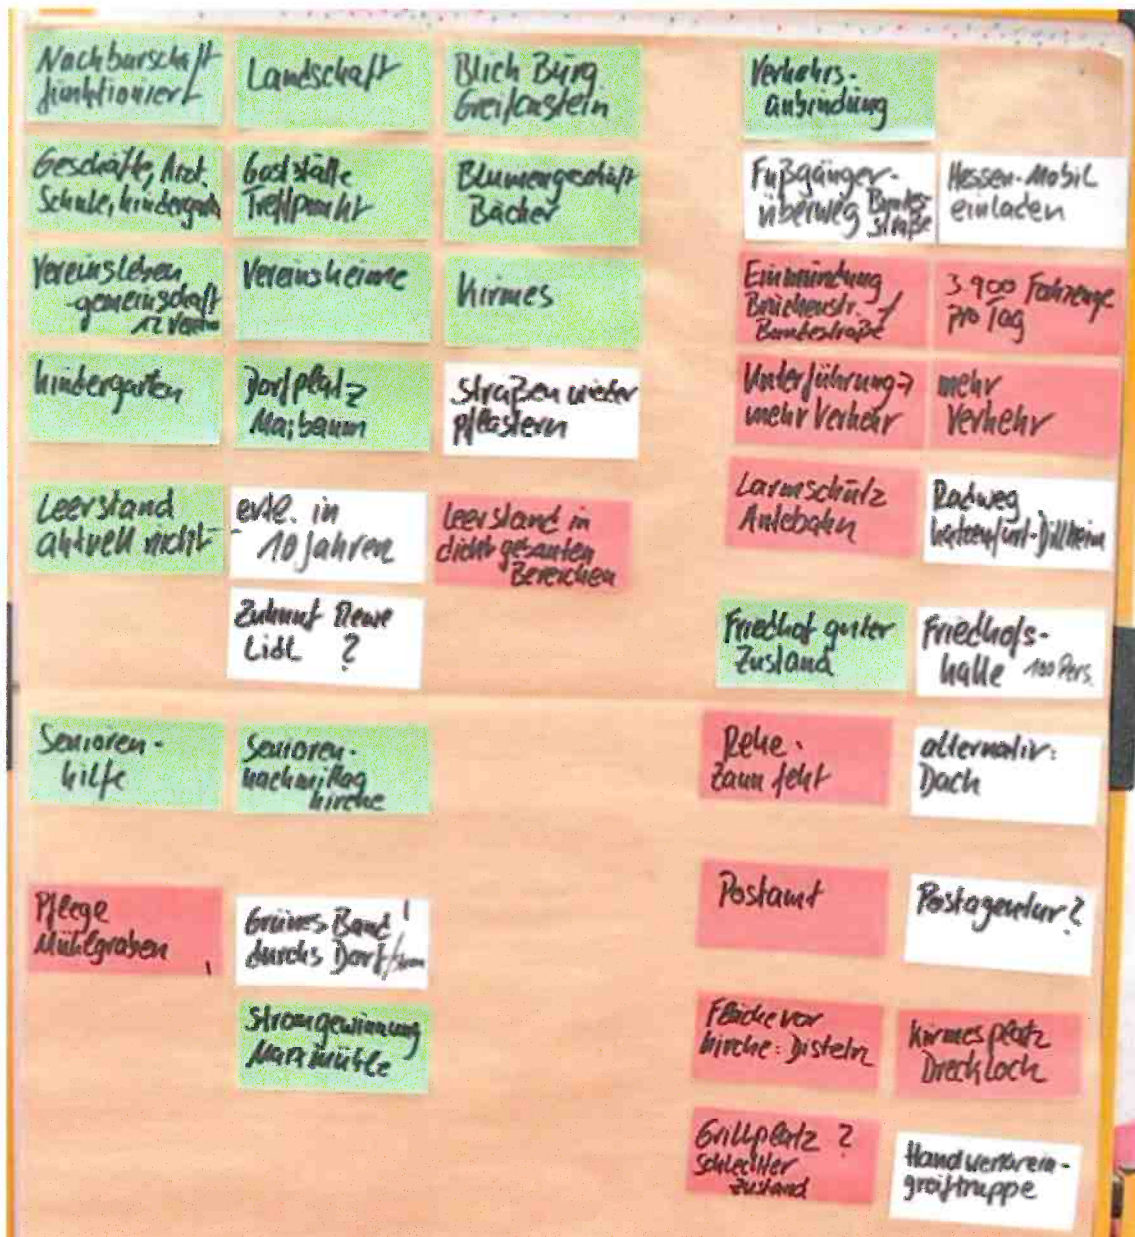 Nachbarschaft
funktioniert
Landschaft
Blick Burg
Greifenstein
Verkehrs-
anbindung
Geschäfte, Arzt,
Schule, Kindergarten
Gaststätte
Treffpunkt
Blumengeschäft
Bäcker
Fußgänger-
überweg Bundes-
straße
Hessen-Mobil
einladen
Vereinsleben
-gemeinschaft
12 Vereine
Vereinsheime
Kirmes
Einmündung
Brückenstr. /
Bundesstraße
3.900 Fahrzeuge
pro Tag
Kindergarten
Dorfplatz
Maibaum
Straßen wieder
pflastern
Unterführung →
mehr Verkehr
mehr
Verkehr
Leerstand
aktuell nicht
evtl. in
10 Jahren
Leerstand in
dicht gebauten
Bereichen
Lärmschutz
Autobahn
Radweg
Katzenfurt-Dillheim
Zukunft Rewe
Lidl ?
Friedhof guter
Zustand
Friedhofs-
halle 100 Pers.
Senioren-
hilfe
Senioren-
nachmittag
Kirche
Rehe -
Zaun fehlt
alternativ:
Dach
Pflege
Mühlgraben
!
Grünes Band !
durchs Dorf
Postamt
Postagentur?
Stromgewinnung
Marxmühle
Fläche vor
Kirche: Disteln
Kirmesplatz
Dreckloch
Grillplatz ?
schlechter
Zustand
Handwerkerein-
greiftruppe